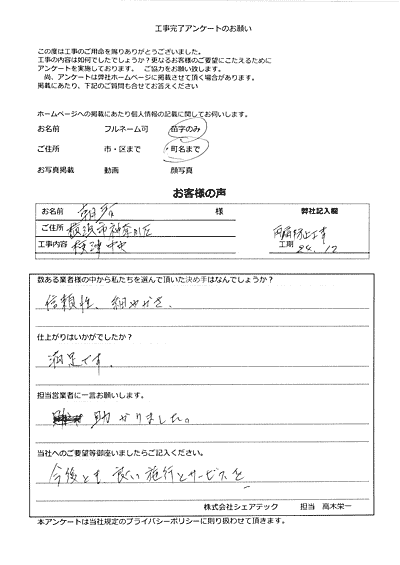 工事完了アンケートのお願い
この度は工事のご用命を賜りありがとうございました。
工事の内容は如何でしたでしょうか？更なるお客様のご要望にこたえるために
アンケートを実施しております。 ご協力をお願い致します。
尚、アンケートは弊社ホームページに掲載させて頂く場合があります。
掲載にあたり、下記のご質問も合せてお答えください
ホームページへの掲載にあたり個人情報の記載に関してお伺いします。
お名前 フルネーム可 苗字のみ
ご住所 市・区まで ・町名まで
お写真掲載 動画 顔写真
お客様の声
お名前 様 弊社記入欄
ご住所 横浜市神奈川区
工事内容 工期 24.12
数ある業者様の中から私たちを選んで頂いた決め手はなんでしょうか？
信頼性、細やかさ、
仕上がりはいかがでしたか？
満足です。
担当営業者に一言お願いします。
助かりました。
当社へのご要望等御座いましたらご記入ください。
今後とも良い施行とサービスを
株式会社シェアテック 担当 高木栄一
本アンケートは当社規定のプライバシーポリシーに則り扱わせて頂きます。